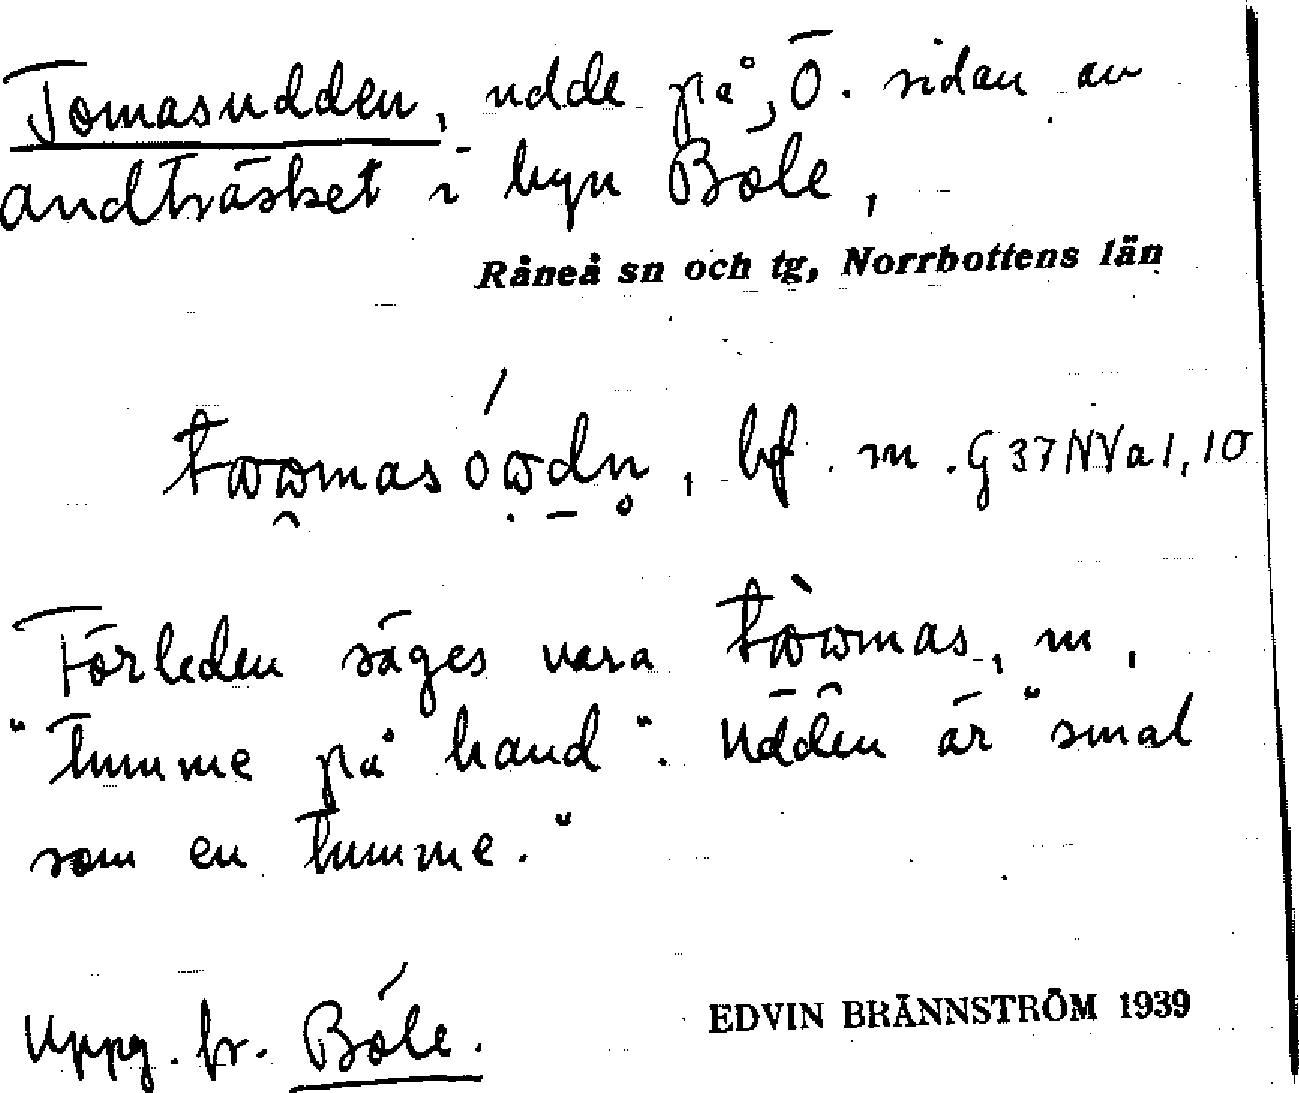 Tomasudden, udde på Ö. sidan av
Andträsket i byn Böle,
Råneå sn och tg, Norrbottens län
bf. m. G 37 NV a 1, 10
Förleden säges vara m,
"tumme på hand". Udden är "smal
som en tumme."
Uppg. fr. Böle.
EDVIN BRÄNNSTRÖM 1939